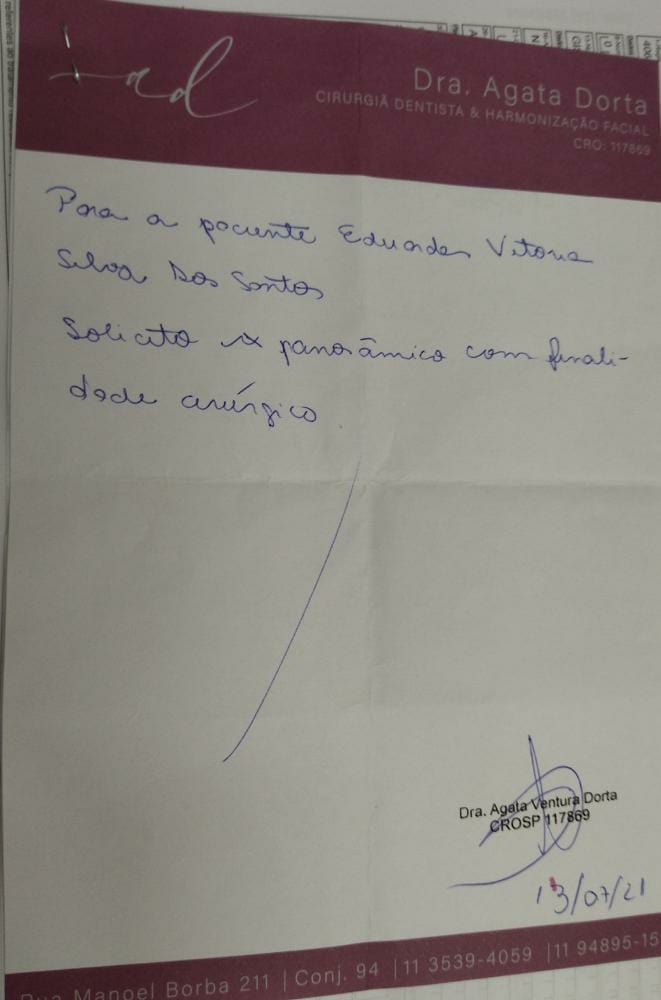 ad
Dra. Agata Dorta
CIRURGIÃ DENTISTA & HARMONIZAÇÃO FACIAL
CRO: 117869
Para a paciente Eduarda Vitoria
Silva Dos Santos
Solicito rx panorâmico com finali-
dade cirúrgico
Dra. Agata Ventura Dorta
CROSP 117869
13/07/21
Rua Manoel Borba 211 | Conj. 94 | 11 3539-4059 | 11 94895-15